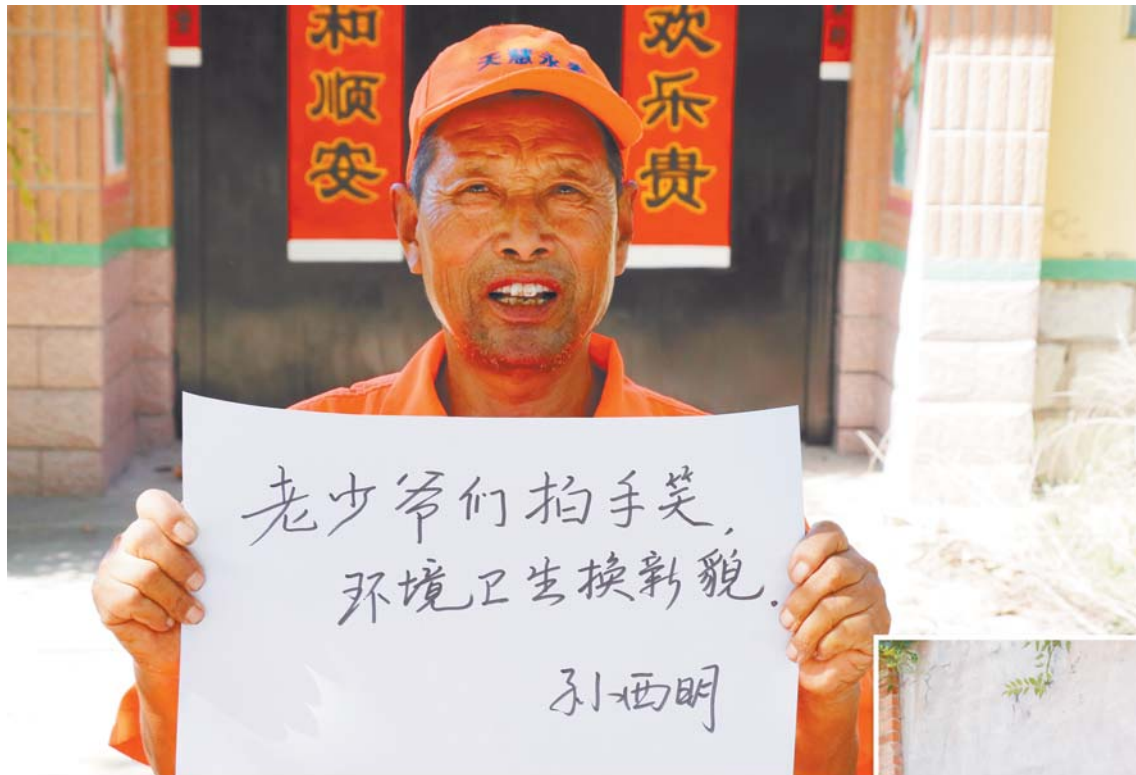 和顺安
欢乐贵
天慧
老少爷们拍手笑,
环境卫生换新貌.
孙西明